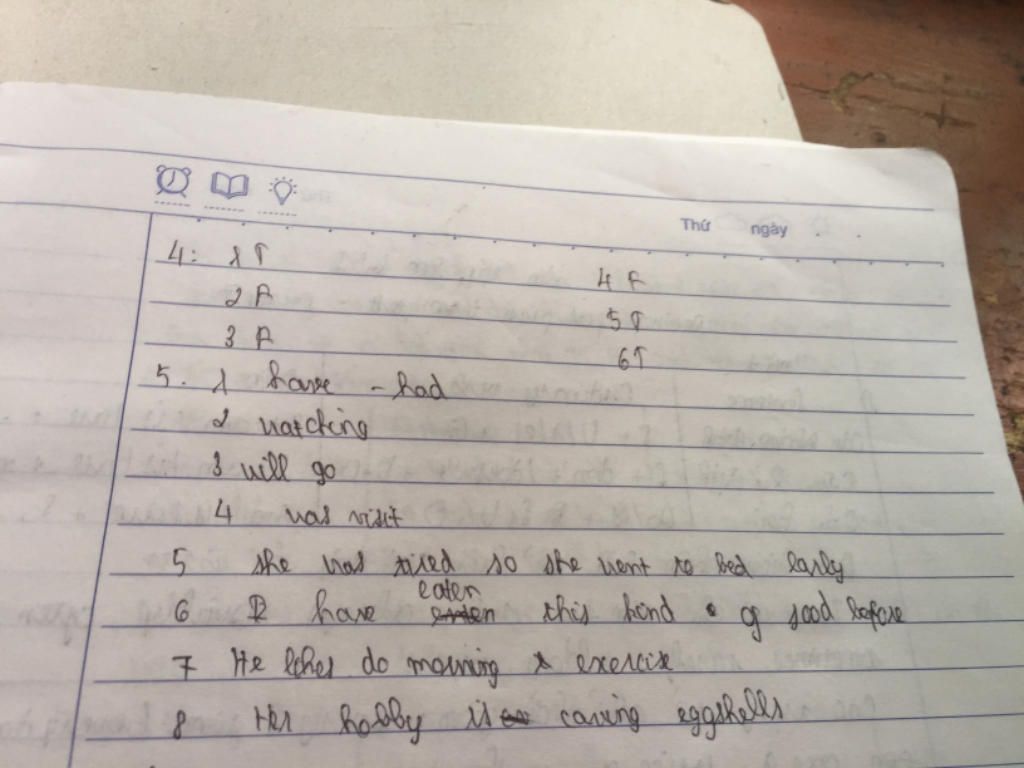 Thứ ngày
4: 1 T 4 F
2 F 5 T
3 F 6 T
5. 1 have - had
2 watching
3 will go
4 was visit
5 she was tired so she went to bed early
6 I have eaten this kind of food before
7 He likes do morning exercise
8 Her hobby is carving eggshells